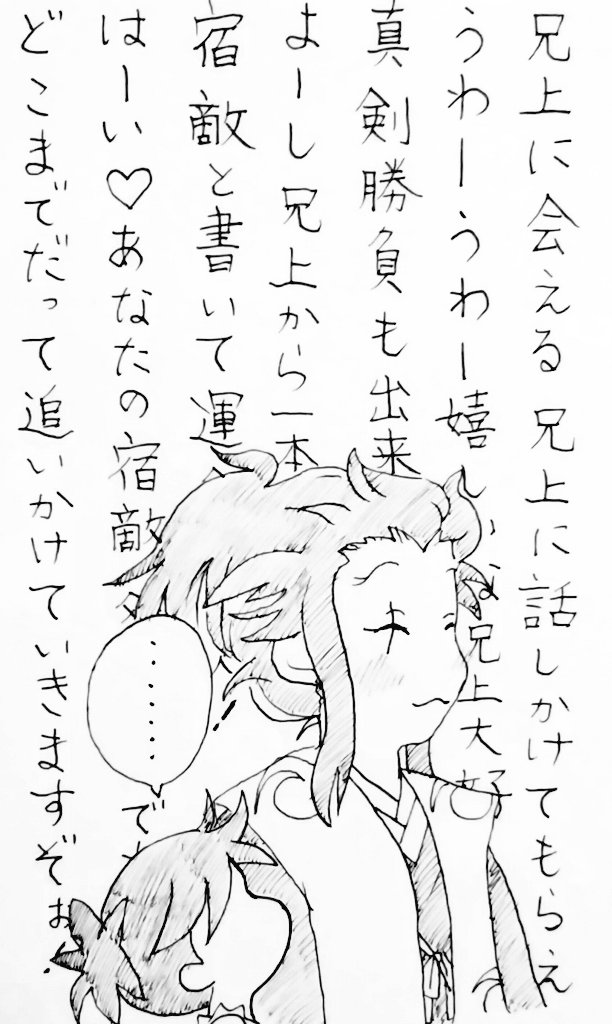 兄上に会える 兄上に話しかけてもらえ
うわーうわー嬉しいな兄上大好
真剣勝負も出来
よーし兄上から一本
宿敵と書いて運
はーい♡あなたの宿敵
どこまでだって追いかけていきますぞぉ
………
で